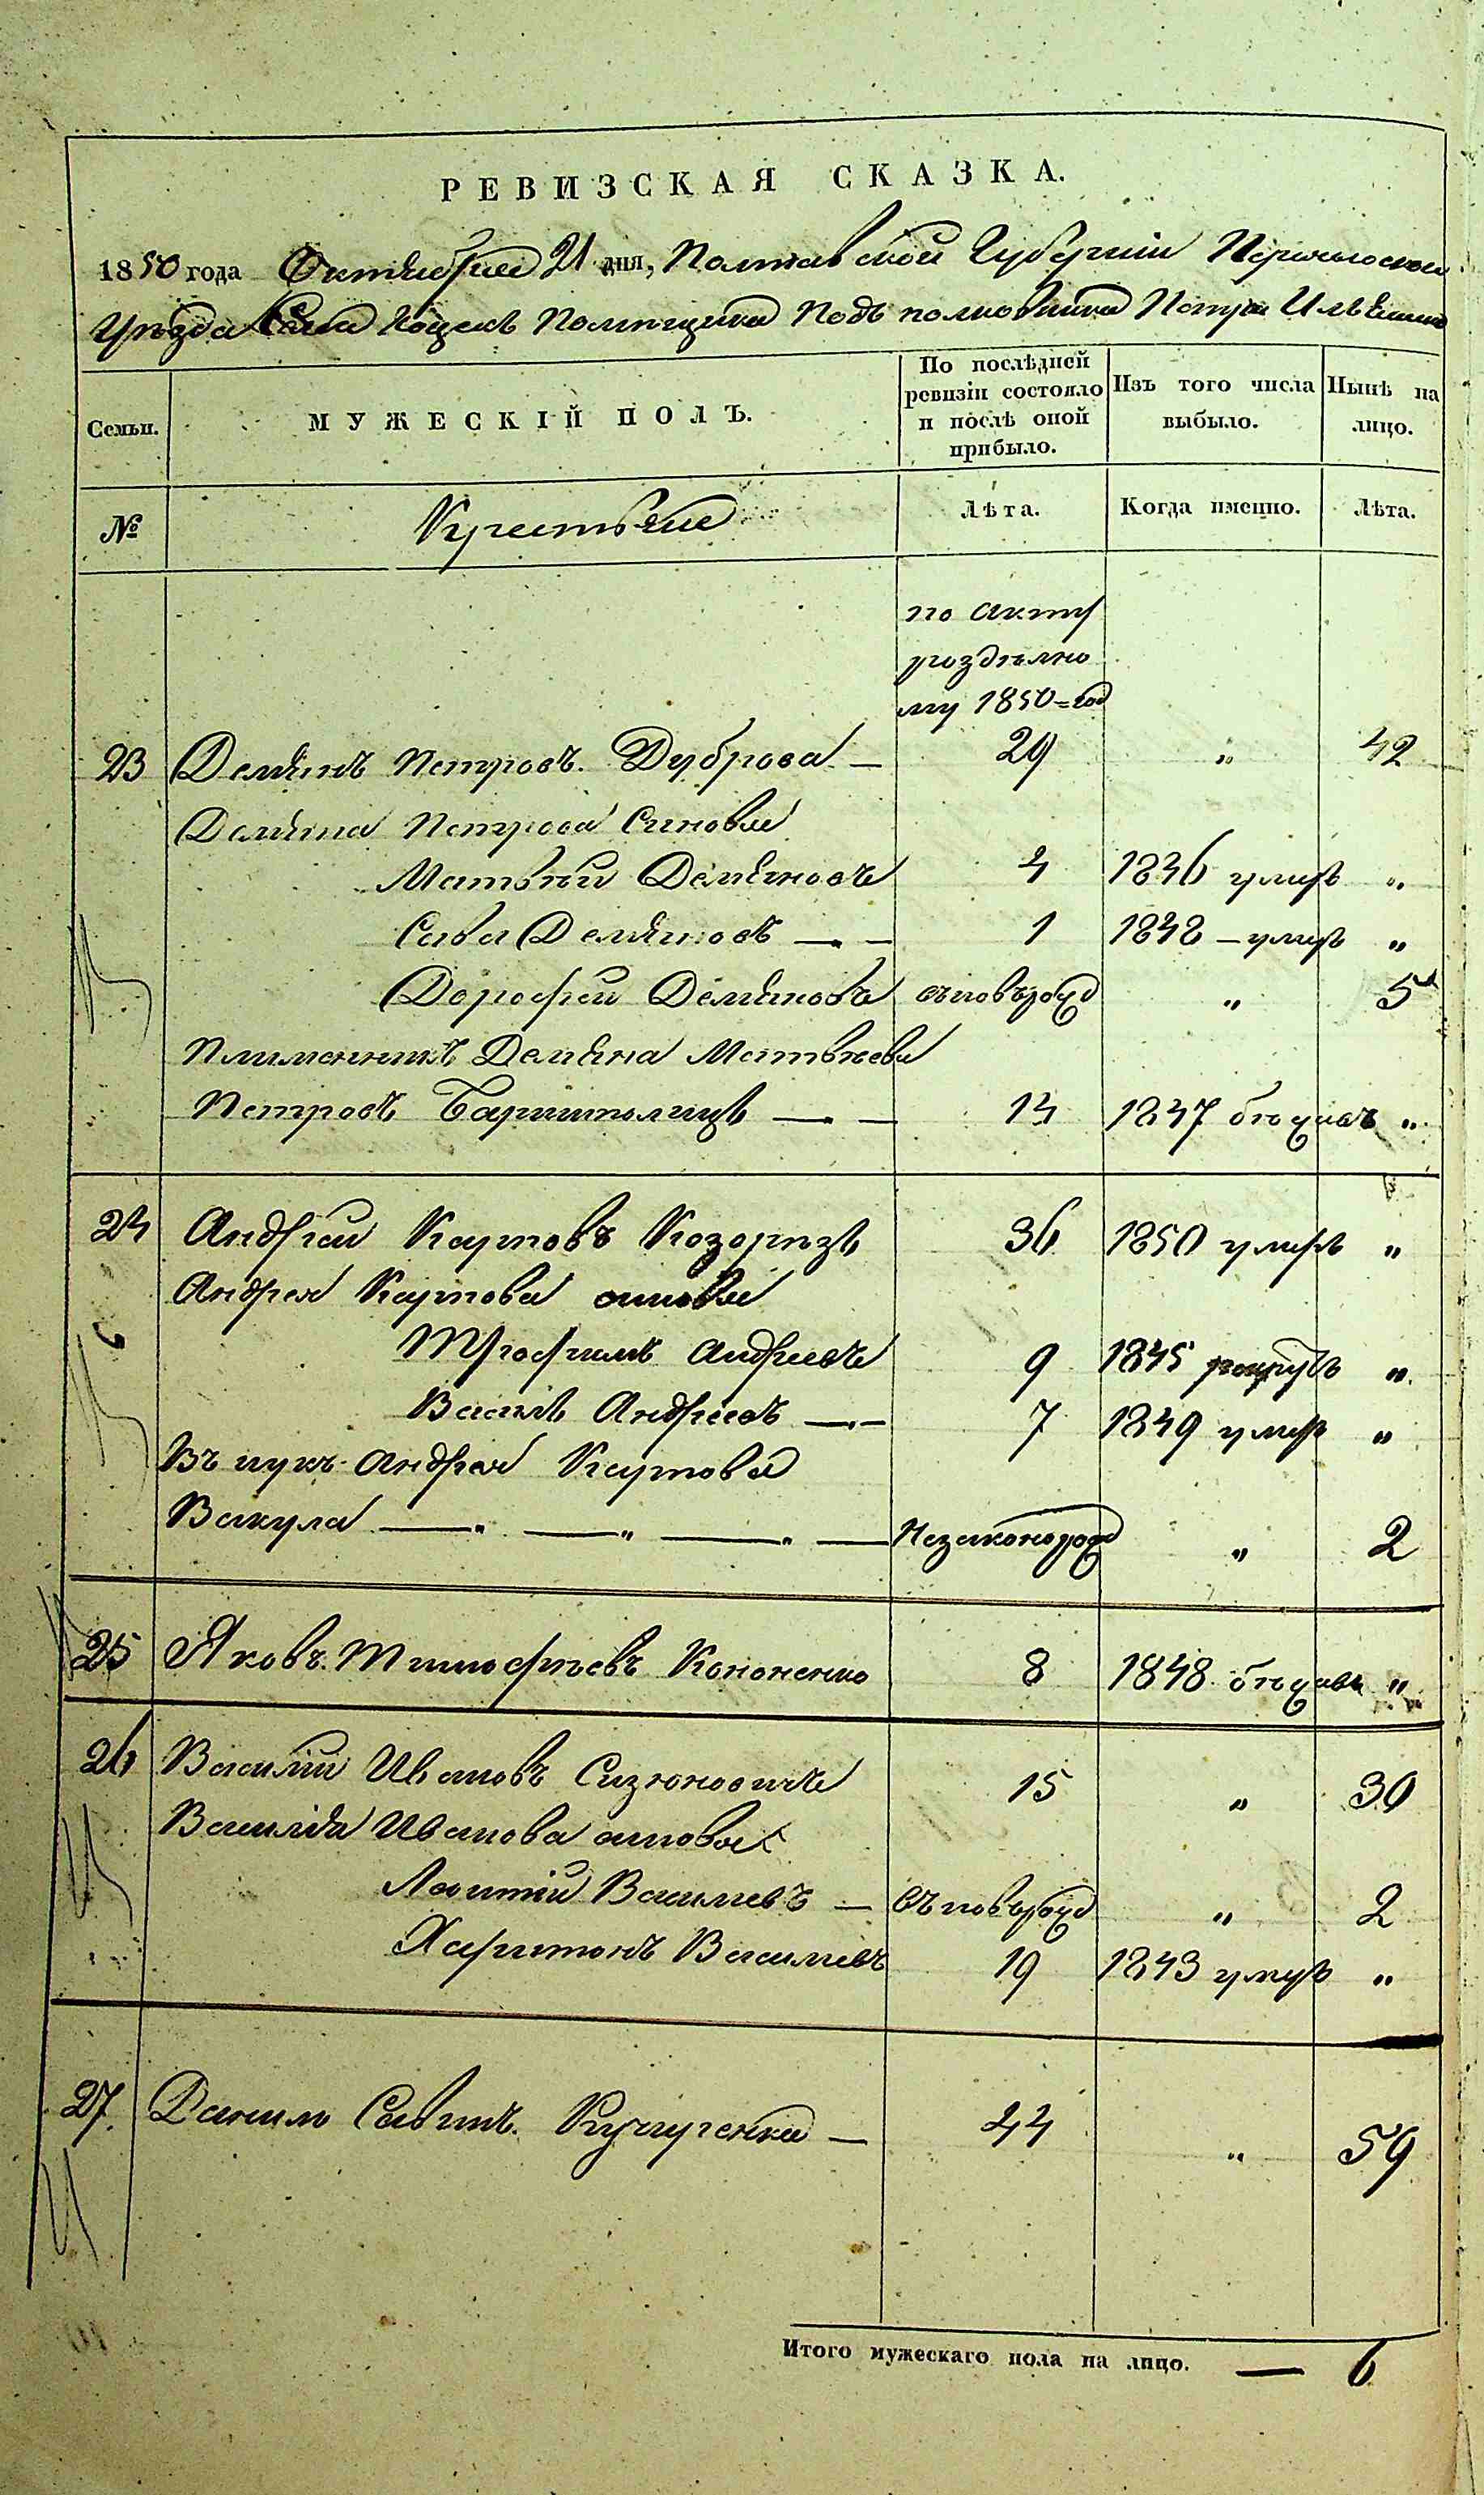 РЕВИЗСКАЯ СКАЗКА.
1850 года Октября 21 дня, Полтавской Губернии
Уѣзда Села Помещика Подъ полковника Петра
Семьи. МУЖЕСКІЙ ПОЛЪ. По послѣдней ревизіи состояло и послѣ оной прибыло. Изъ того числа выбыло. Нынѣ на лицо.
№ Крестьяне Лѣта. Когда именно. Лѣта.
по акту
раздѣлно
му 1850=год
23 Демянъ Петровъ Дуброва — 29 " 42
Демяна Петрова Синовя
Матвѣй Демяновъ 4 1836 умеръ "
Сава Демяновъ — 1 1848 — умеръ "
Дорофей Демяновъ въновърожд " 5
Плименникъ Демяна Матвѣева
Петровъ — 14 1847 бѣжавъ "
24 Андрей Карповъ Козорѣзъ 36 1850 умеръ "
Андрея Карпова синовя
Трофимъ Андреевъ 9 1845 рекрутъ "
Василь Андреевъ — 7 1849 умеръ "
Внукъ Андрея Карпова
Вакула — " — " — " — Незаконорожд " 2
25 Яковъ Тимофѣевъ Кононенко 8 1848 бѣжавъ "
26 Василий Ивановъ 15 " 30
Василія Иванова синовя
Василиевъ — въновърожд " 2
Харитонъ Василиевъ 19 1843 умеръ "
27. Данило Савинъ — 44 " 59
Итого мужескаго пола на лицо. — 6